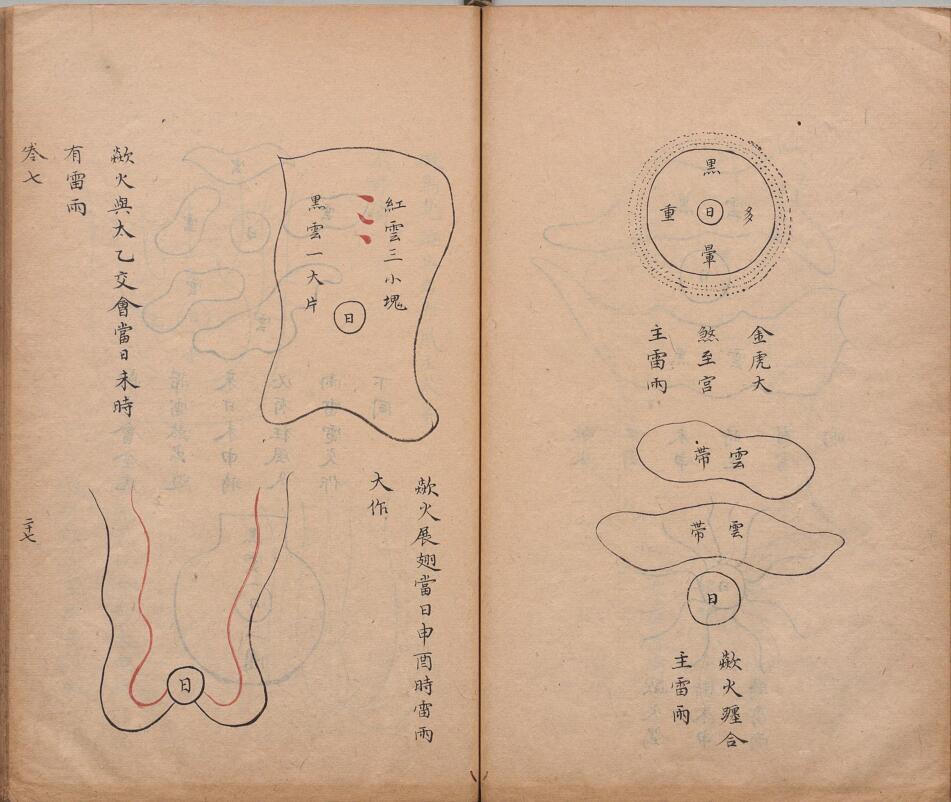 黑
多
日
重
暈
金虎大
煞至宮
主雷雨
雲
帶
雲
帶
日
歘火躔合
主雷雨
紅雲三小塊
黑雲一大片
日
歘火與太乙交會當日未時
有雷雨
歘火展翅當日申酉時雷雨
大作
日
卷七
二十七